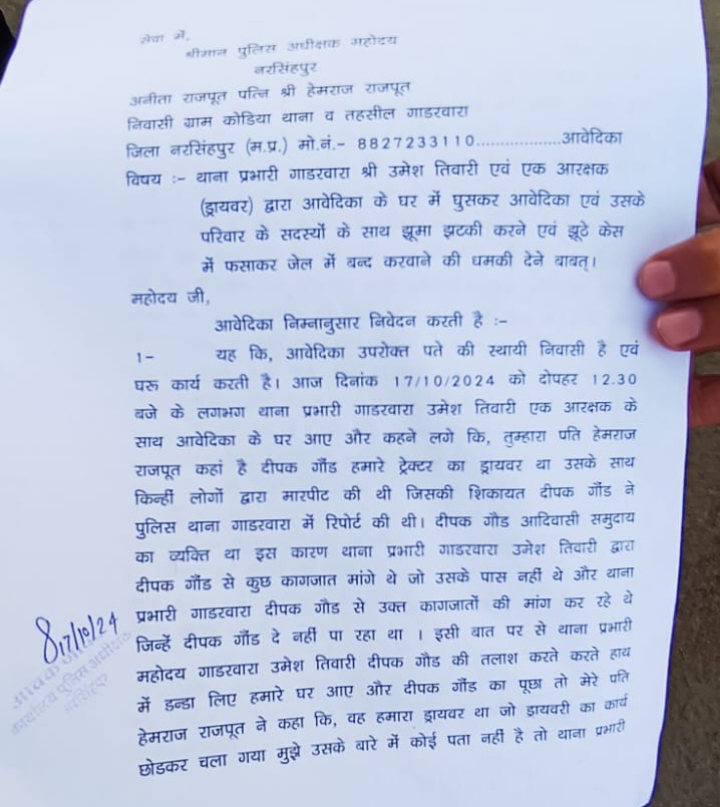 सेवा में,
श्रीमान पुलिस अधीक्षक महोदय
नरसिंहपुर
अनीता राजपूत पत्नि श्री हेमराज राजपूत
निवासी ग्राम कोडिया थाना व तहसील गाडरवारा
जिला नरसिंहपुर (म.प्र.) मो.नं.- 8827233110..................आवेदिका
विषय :- थाना प्रभारी गाडरवारा श्री उमेश तिवारी एवं एक आरक्षक
(ड्रायवर) द्वारा आवेदिका के घर में घुसकर आवेदिका एवं उसके
परिवार के सदस्यों के साथ झूमा झटकी करने एवं झूठे केस
में फसाकर जेल में बन्द करवाने की धमकी देने बाबत्।
महोदय जी,
आवेदिका निम्नानुसार निवेदन करती है :-
1- यह कि, आवेदिका उपरोक्त पते की स्थायी निवासी है एवं
घरू कार्य करती है। आज दिनांक 17/10/2024 को दोपहर 12.30
बजे के लगभग थाना प्रभारी गाडरवारा उमेश तिवारी एक आरक्षक के
साथ आवेदिका के घर आए और कहने लगे कि, तुम्हारा पति हेमराज
राजपूत कहां है दीपक गौंड हमारे ट्रेक्टर का ड्रायवर था उसके साथ
किन्हीं लोगों द्वारा मारपीट की थी जिसकी शिकायत दीपक गौंड ने
पुलिस थाना गाडरवारा में रिपोर्ट की थी। दीपक गौड आदिवासी समुदाय
का व्यक्ति था इस कारण थाना प्रभारी गाडरवारा उमेश तिवारी द्वारा
दीपक गौंड से कुछ कागजात मांगे थे जो उसके पास नहीं थे और थाना
प्रभारी गाडरवारा दीपक गौड से उक्त कागजातों की मांग कर रहे थे
जिन्हें दीपक गौंड दे नहीं पा रहा था । इसी बात पर से थाना प्रभारी
महोदय गाडरवारा उमेश तिवारी दीपक गौंड की तलाश करते करते हाथ
में डन्डा लिए हमारे घर आए और दीपक गौंड का पूछा तो मेरे पति
हेमराज राजपूत ने कहा कि, वह हमारा ड्रायवर था जो ड्रायवरी का कार्य
छोडकर चला गया मुझे उसके बारे में कोई पता नहीं है तो थाना प्रभारी
17/10/24
कार्यालय पुलिस अधीक्षक
नरसिंहपुर